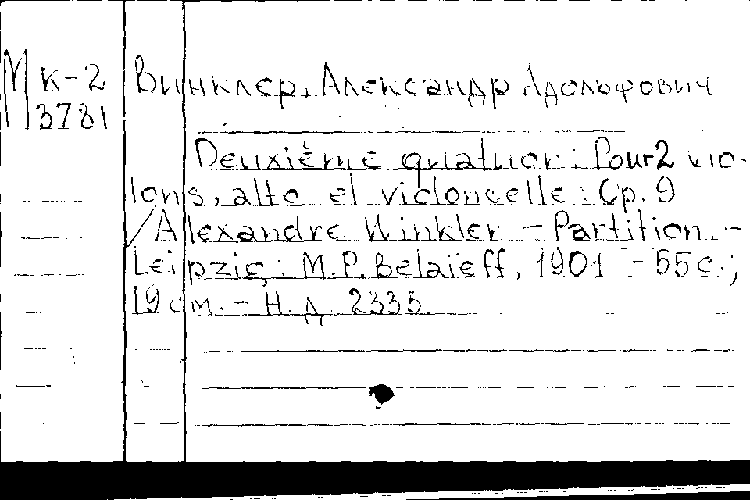 Мк-2 Винклер, Александр Адольфович
3781
Deuxième quatuor: Pour 2 vio-
lons, alto et violoncelle: Op. 9
/ Alexandre Winkler. - Partition. -
Leipzig: M. P. Belaïeff, 1901. - 55 с.;
19 см. - Н. д. 2335.